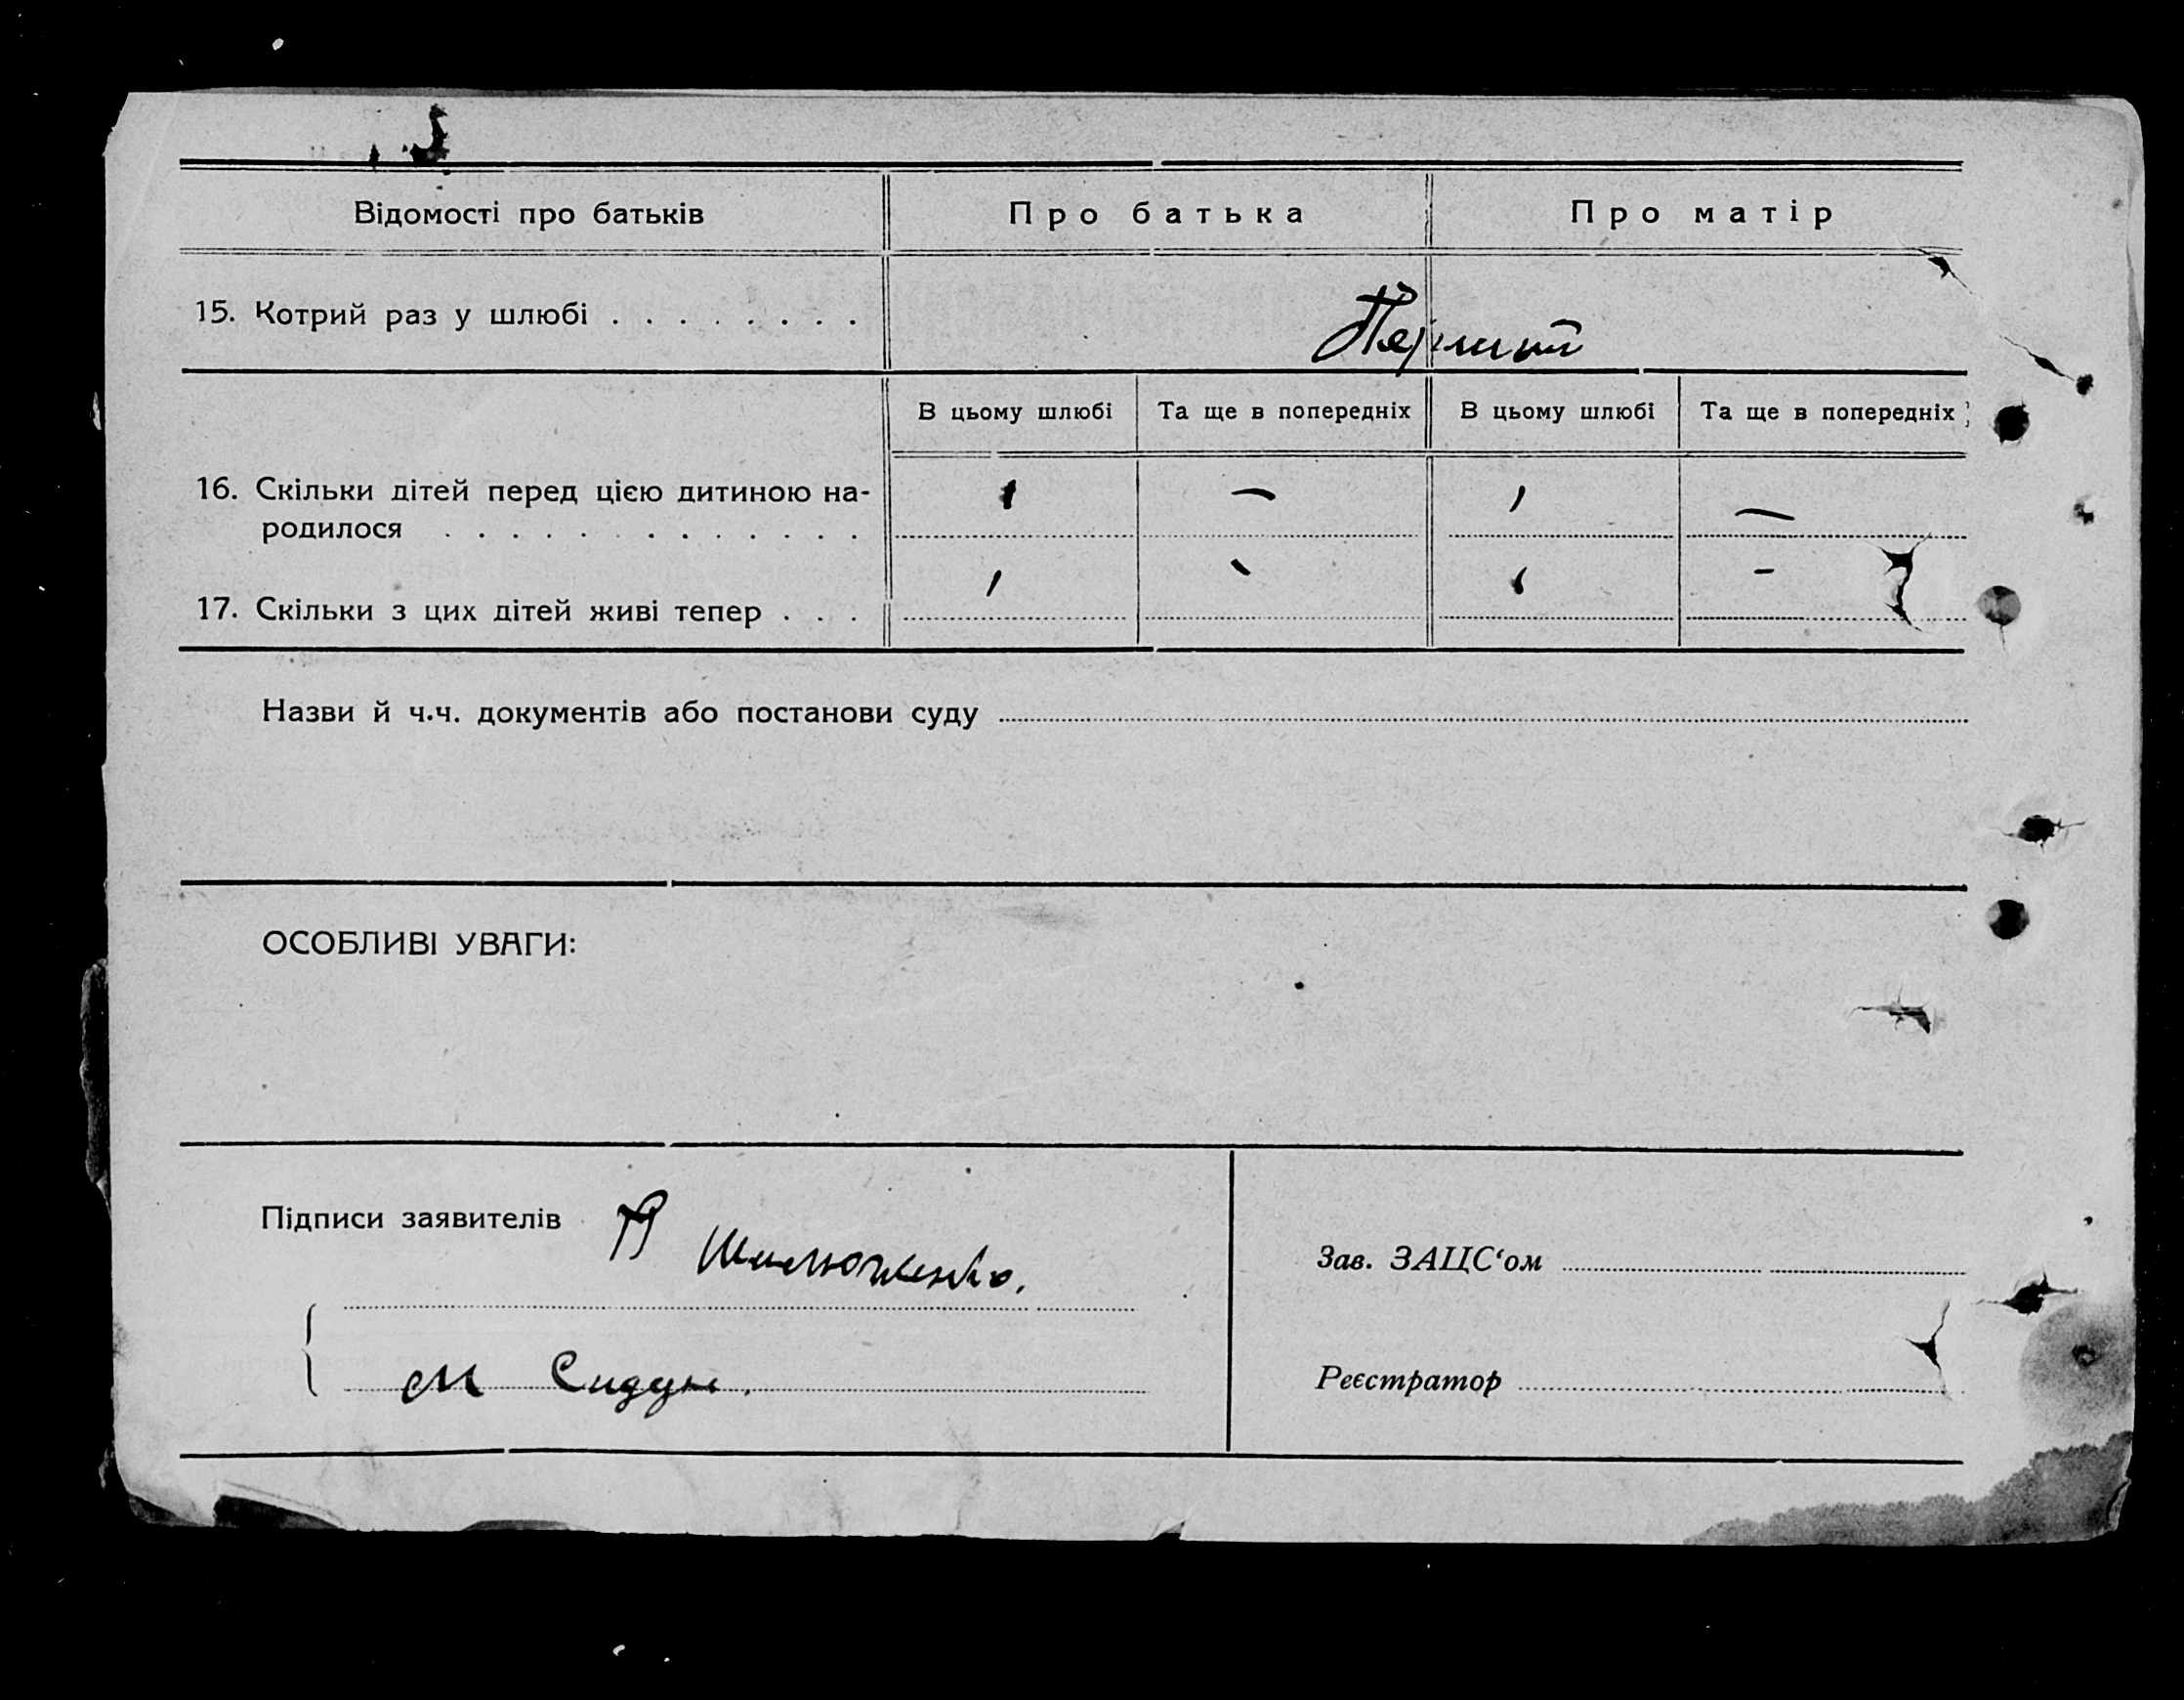 Відомості про батьків Про батька Про матір
15. Котрий раз у шлюбі . . . . . . . .
В цьому шлюбі Та ще в попередніх В цьому шлюбі Та ще в попередніх
16. Скільки дітей перед цією дитиною на- 1 — 1 —
родилося . . . . . . . . . . . . .
17. Скільки з цих дітей живі тепер . . . 1 - 1 -
Назви й ч.ч. документів або постанови суду
ОСОБЛИВІ УВАГИ:
Підписи заявителів
Зав. ЗАЦС‘ом
М Сидун.
Реєстратор